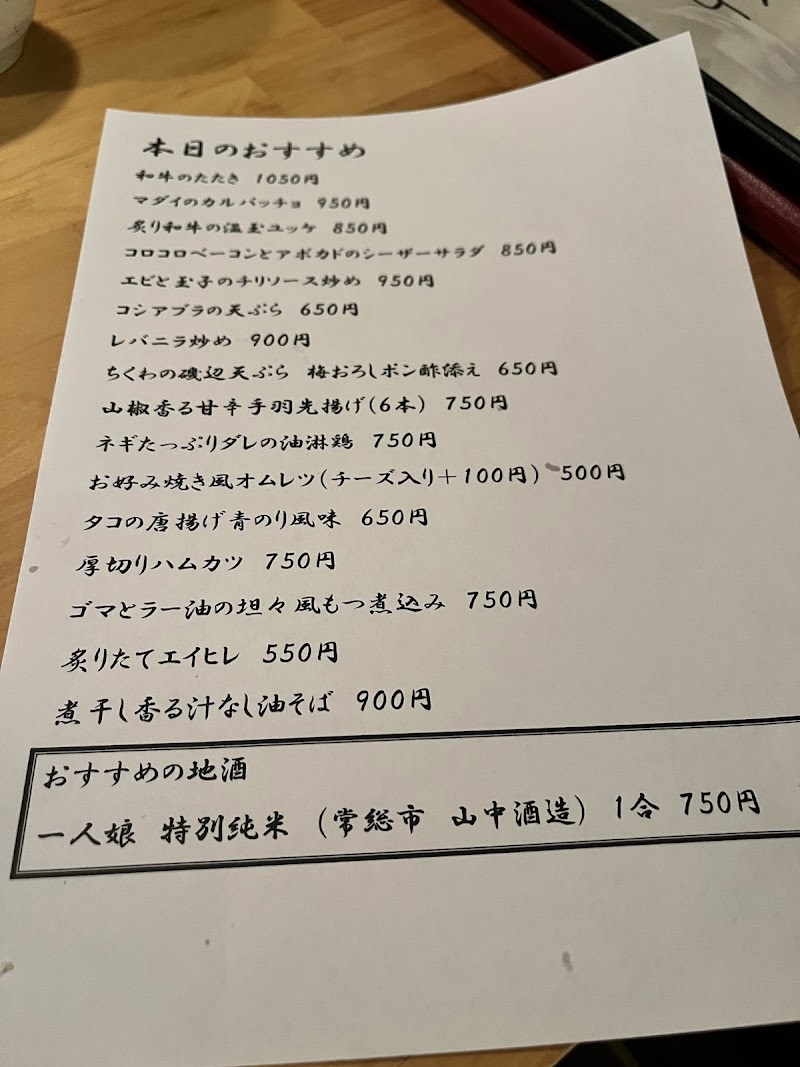 本日のおすすめ
和牛のたたき 1050円
マダイのカルパッチョ 950円
炙り和牛の温玉ユッケ 850円
コロコロベーコンとアボカドのシーザーサラダ 850円
エビと玉子のチリソース炒め 950円
コシアブラの天ぷら 650円
レバニラ炒め 900円
ちくわの磯辺天ぷら 梅おろしポン酢添え 650円
山椒香る甘辛手羽先揚げ(6本) 750円
ネギたっぷりダレの油淋鶏 750円
お好み焼き風オムレツ(チーズ入り+100円) 500円
タコの唐揚げ青のり風味 650円
厚切りハムカツ 750円
ゴマとラー油の坦々風もつ煮込み 750円
炙りたてエイヒレ 550円
煮干し香る汁なし油そば 900円
おすすめの地酒
一人娘 特別純米 (常総市 山中酒造) 1合 750円